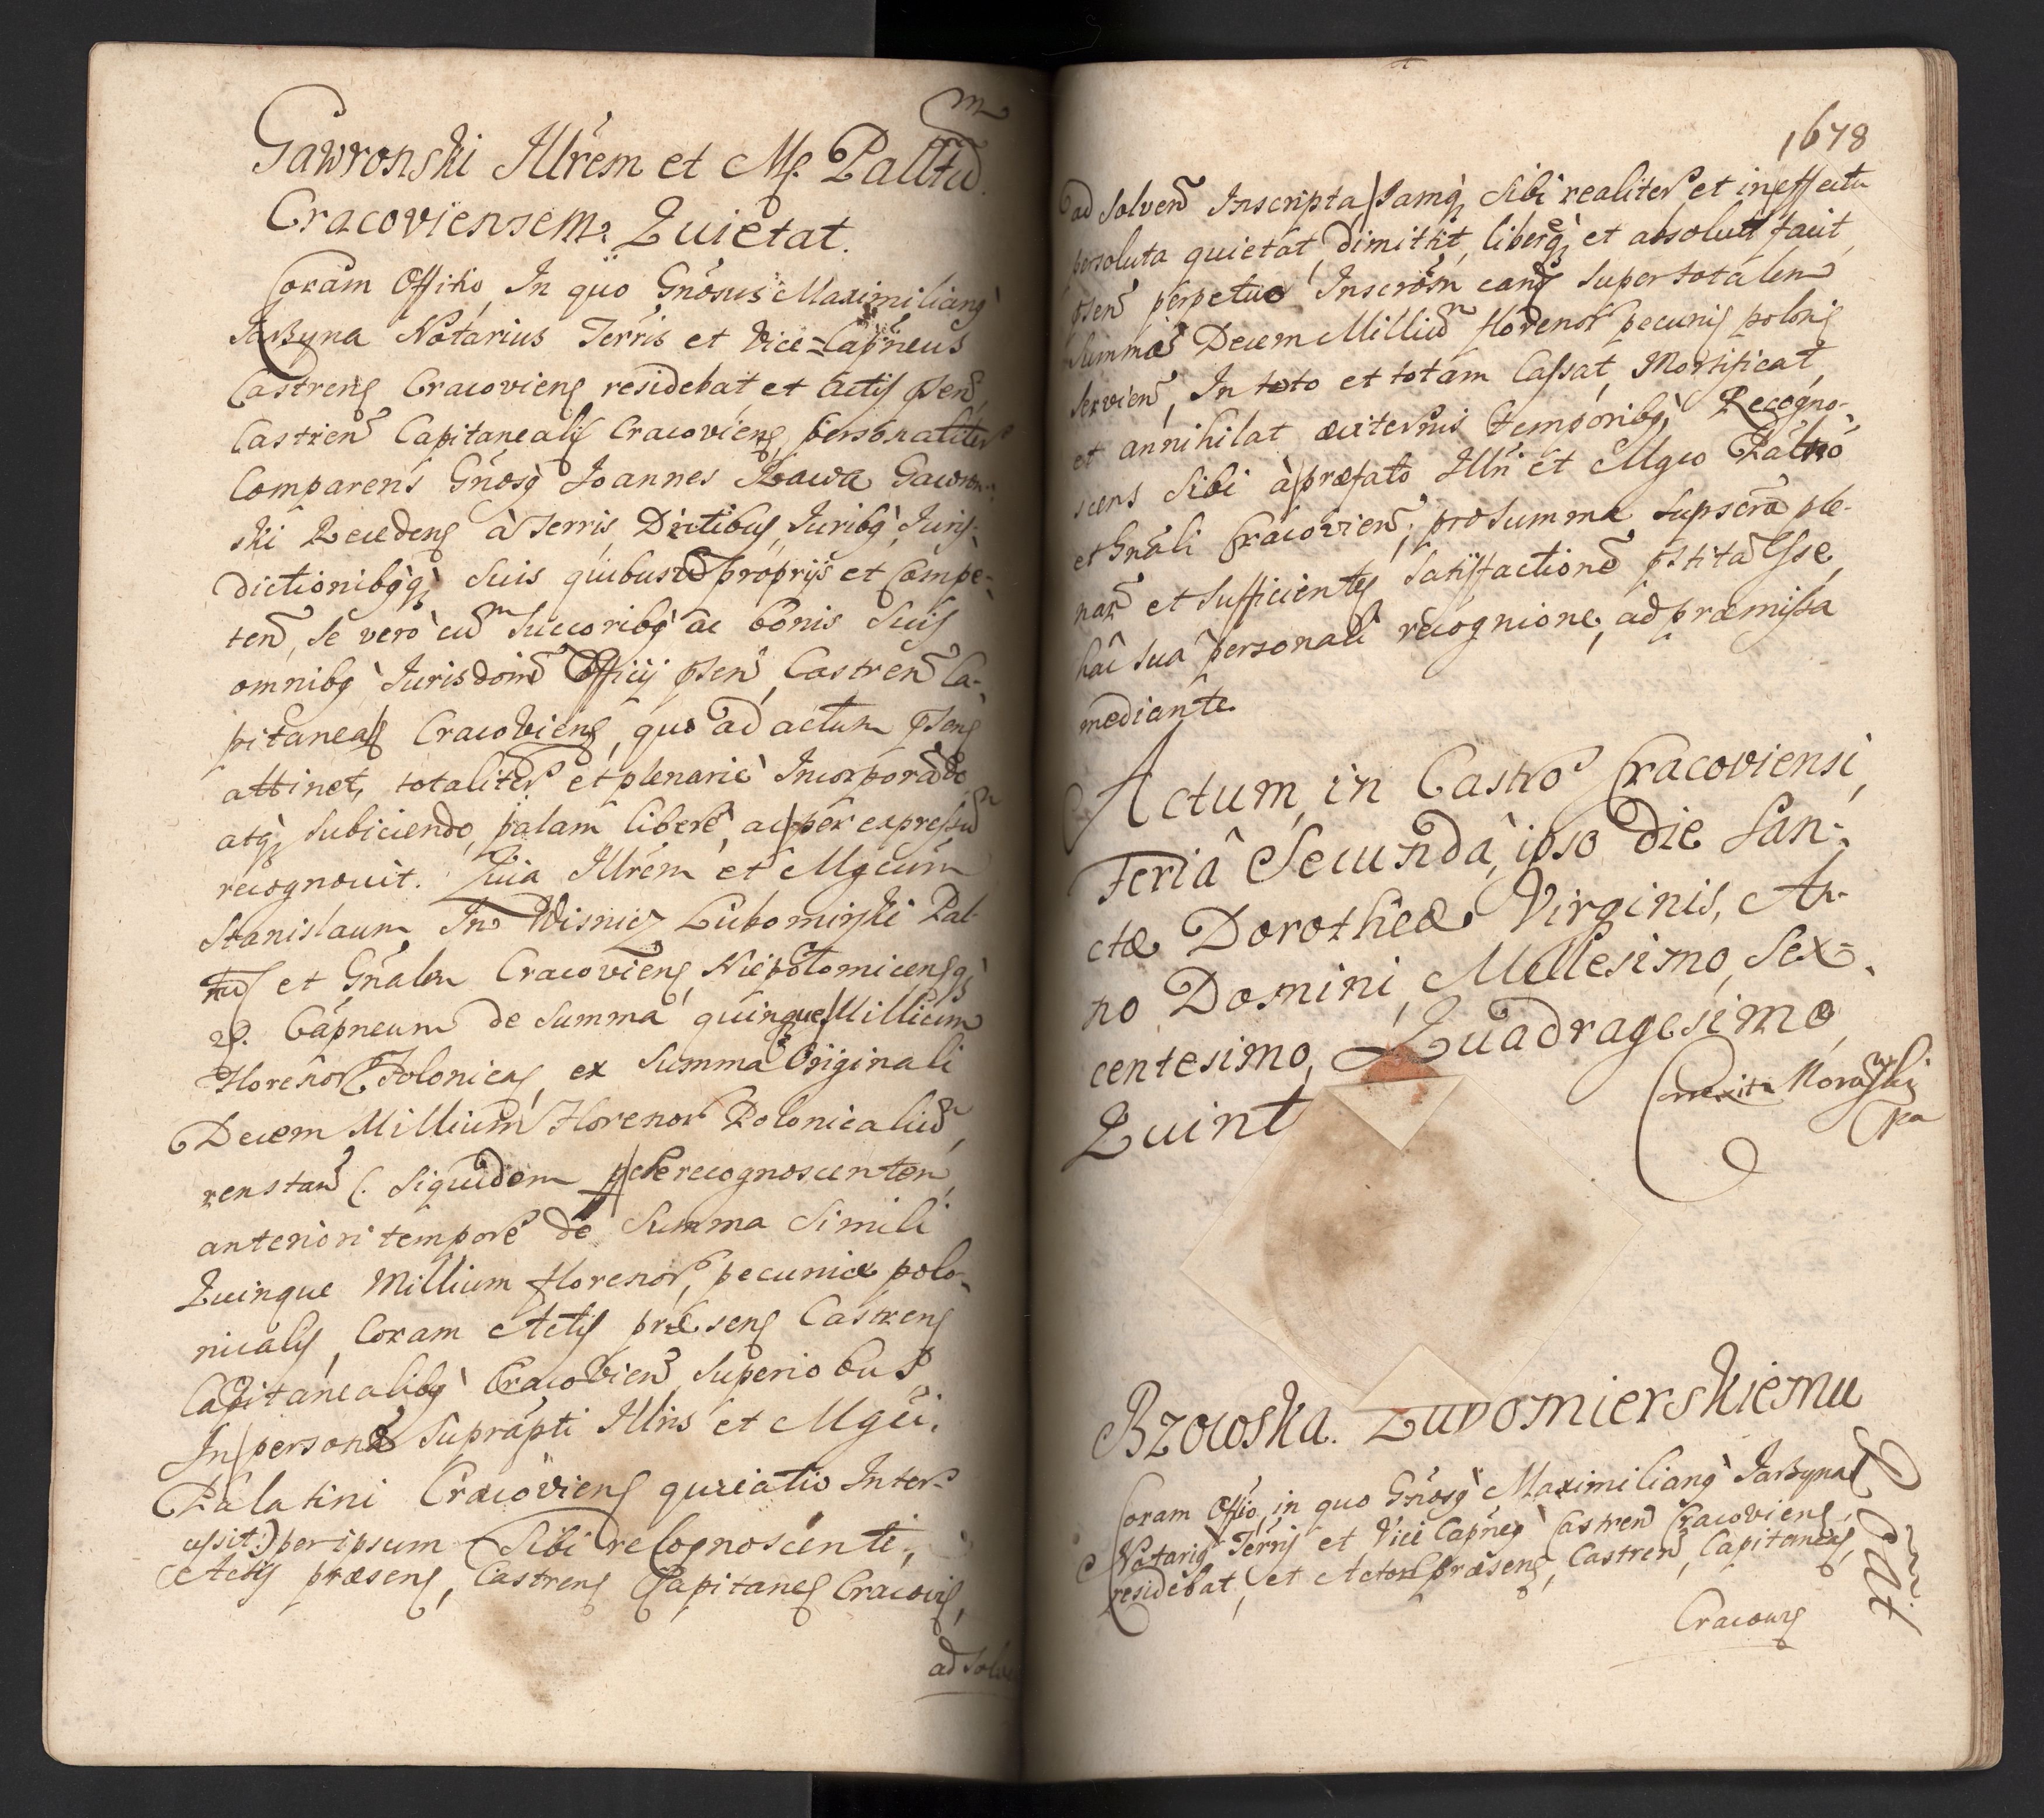 Gawronski Illrem et Mg. Pallтũ
Cracoviensem: Quietat.
Coram Offitio, In quo Gnosus Maximilianq
Jarzyna Notarius Terris et Vice-Capneus
Castrens Cracoviens residebat et Actis psen
Castren Capitanealis Cracoviens personaliter
Comparens Gnosq Joannes Rawa Gawron-
ski Recedens à Terris Dictibus, Juribq, Juris-
dictionibqq suis quibusvis proprijs et Compe-
ten, Se vero cum Succoribq ac bonis Suis
omnibq Jurisdoni Officij psen Castren Ca-
pitaneal Cracoviens, quo ad actum psens
attinet, totaliter et plenarie Incorporãdo
atq subiciendo, palam libere, ac per expressũ
recognovit. Quia Illrem et Mgcum
Stanislaum In Wisnicz Lubomirski Pal-
tũ et Gnalem Cracoviens, Niepolomicensq
&. Capneum de Summa quinque Millium
Florenor Polonical, ex Summa Originali
Decem Millium Florenor Polonicaliũ,
renstan (. Siquidem p se recognoscentem
anteriori tempore de Summa Simili
Quinque Millium florenor, pecuniæ polo-
nicalis, Coram Actis præsens Castrens
Capitanealibq Cracovien Superiobus
In persona Suprapti Illris et Mgci.
Palatini Cracoviens quietatio Inter-
cessit:) per ipsum Sibi recognoscenti,
Actis præsens, Castrens Capitanes Cracovis,
ad Solven
1678
ad Solven Inscripta, Jamq Sibi realiter et in effectu
persoluta quietat, dimittit, liberq et absolut facit,
psen perpetuo Inscrom eand super totalem
Summã Decem Milliũ florenor pecuniæ polonis
servien, In toto et totam Cassat, Mortificat,
et annihilat æviternis temporibq, Recogno-
scens Sibi à præfato Illri et Mgco Paltno
et Gnali Cracovien, pro Summa Supscra ple-
nar et Sufficientes Satisfactione pstita Esse
hac Sua personali recognione, ad præmissa
mediante.
Actum, in Castro Cracoviensi,
Feria Secunda, ipso Die San-
ctæ Dorotheæ Virginis, An-
no Domini Millesimo, Sex-
centesimo, Quadragesimo,
Quint
Correxit Morawski
mpa
Bzowska. Lubomierskiemu
Quietat.
Coram Offio, in quo Gnosq Maximilianq Jarzyna
Notariq Terris et Vice Capneq Castren Cracoviens
residebat, et Actor præsens, Castren, Capitaneas,
Cracovis